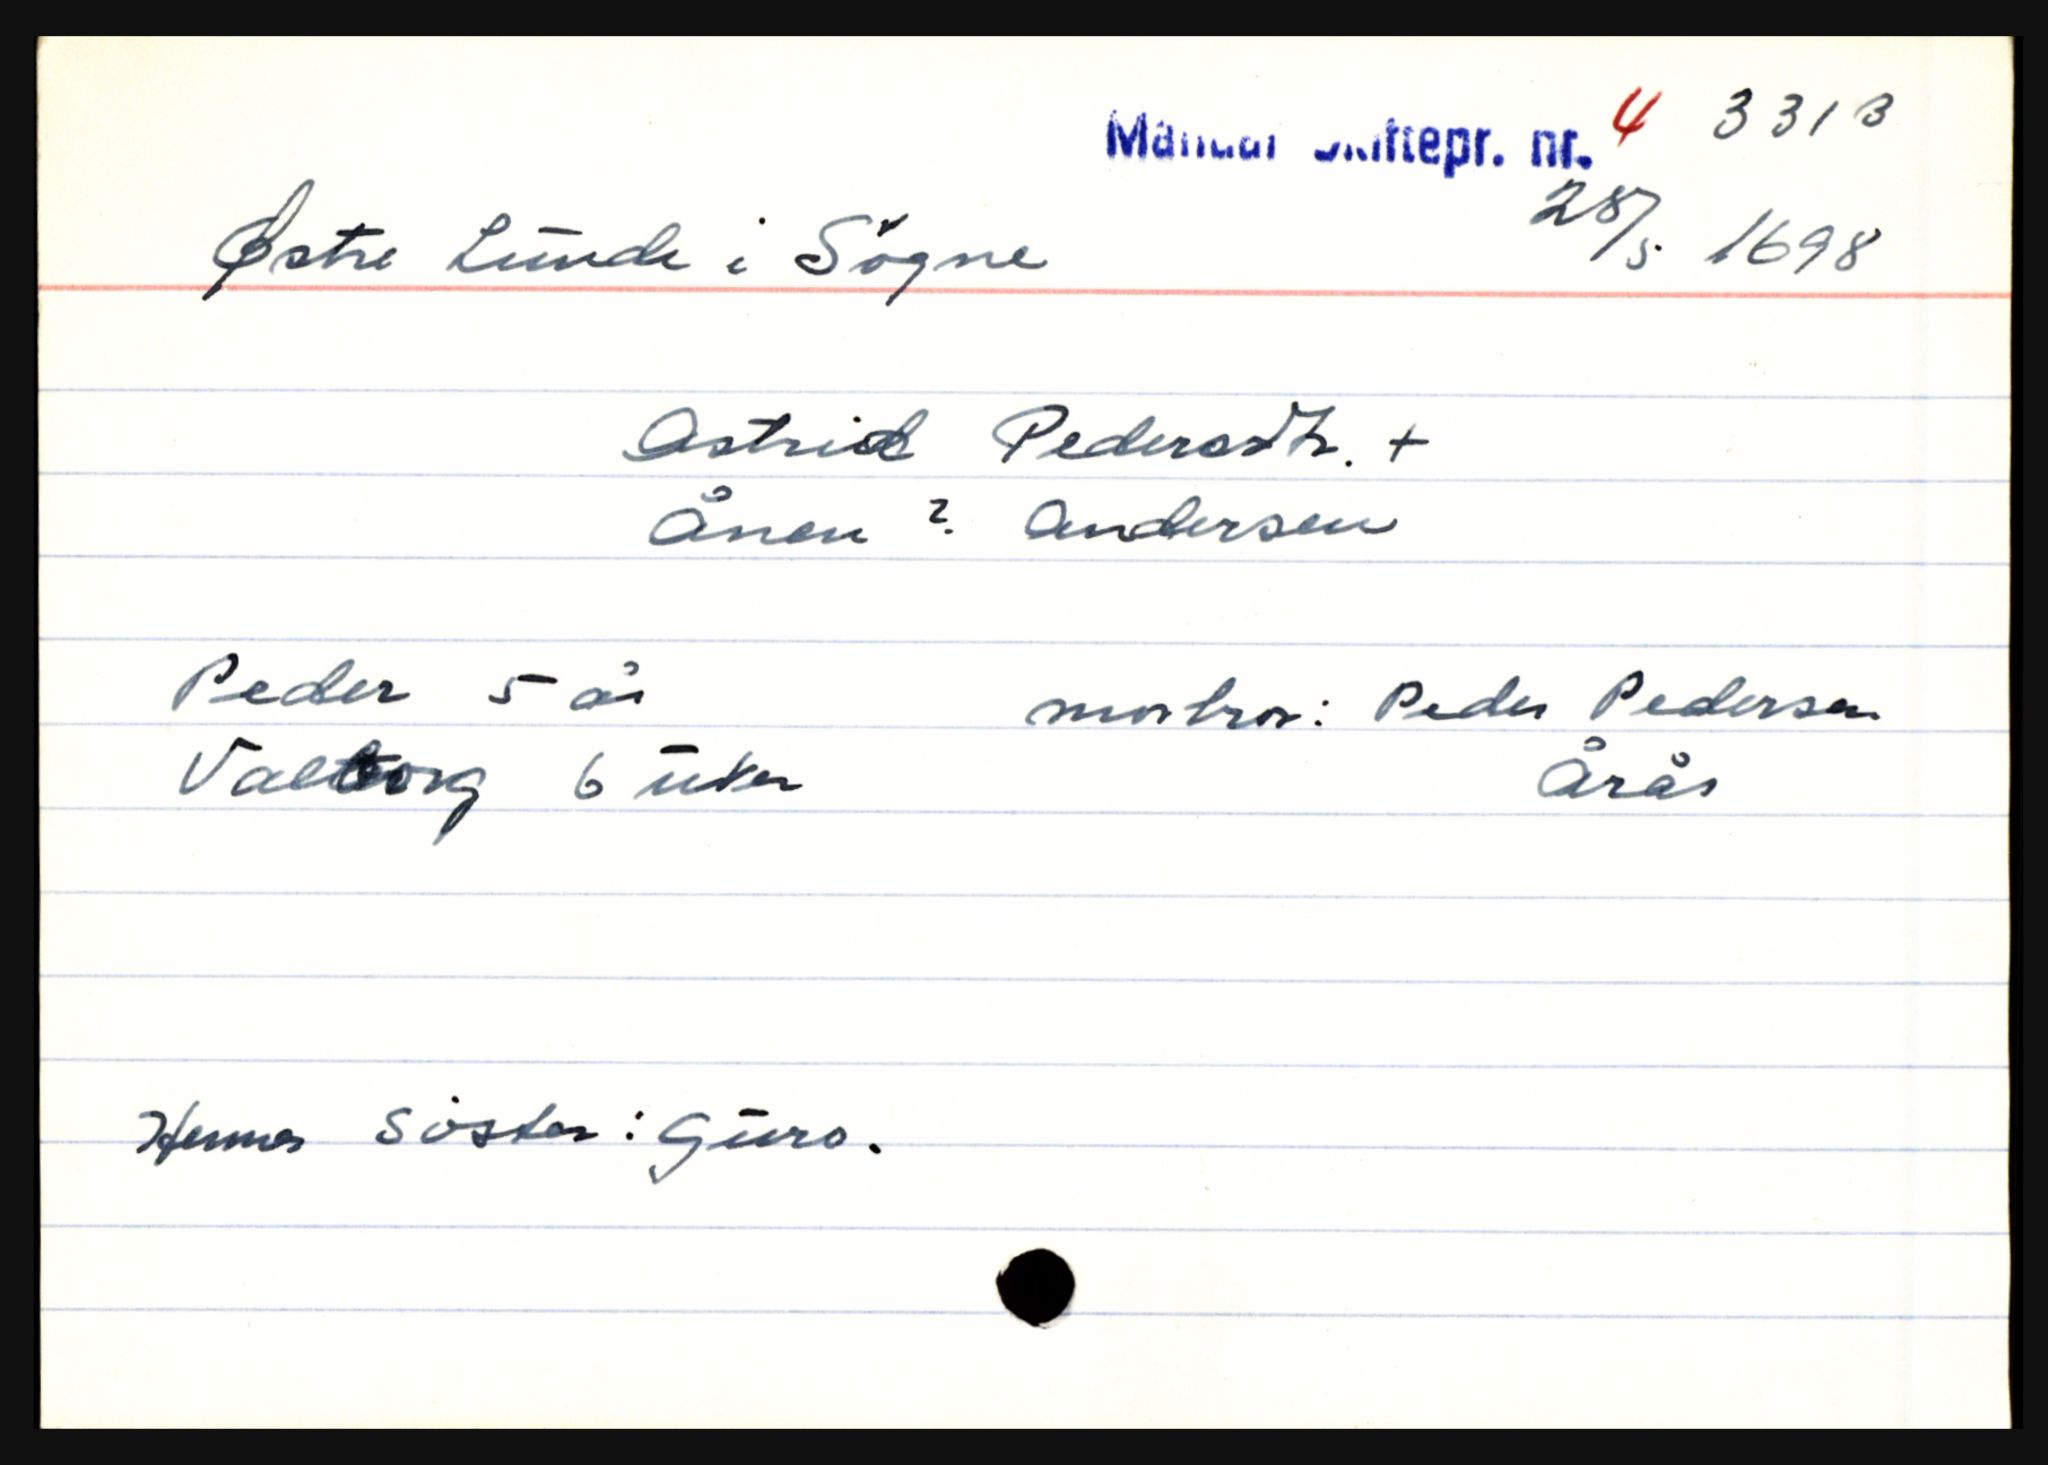 Mandal Skiftepr. nr. 4 331 B
Østre Lunde i Søgne 28/5 1698
Astrid Pedersdtr. +
Ånen ? Andersen
Peder 5 år morbror: Peder Pedersen
Valborg 6 uker Årås
Hennes søster: Guro.